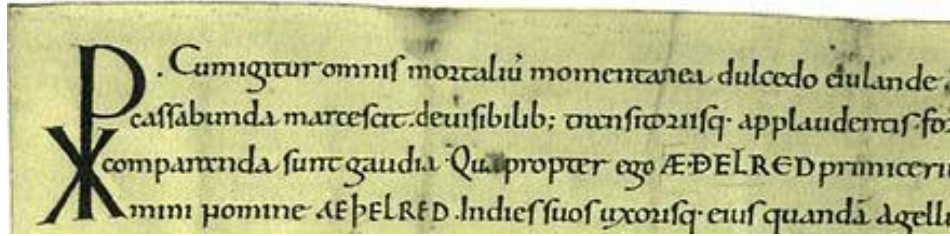 . Cumigitur omnis mortaliū momentanea dulcedo eiulande
cassabunda marcescit. de uisibilib; transitoriisq· applaudentis·
comparanda sunt gaudia· Quapropter ego ÆÐELRED
mini nomine ÆÞELRED. Indies suos uxorisq· eius quandā agelli